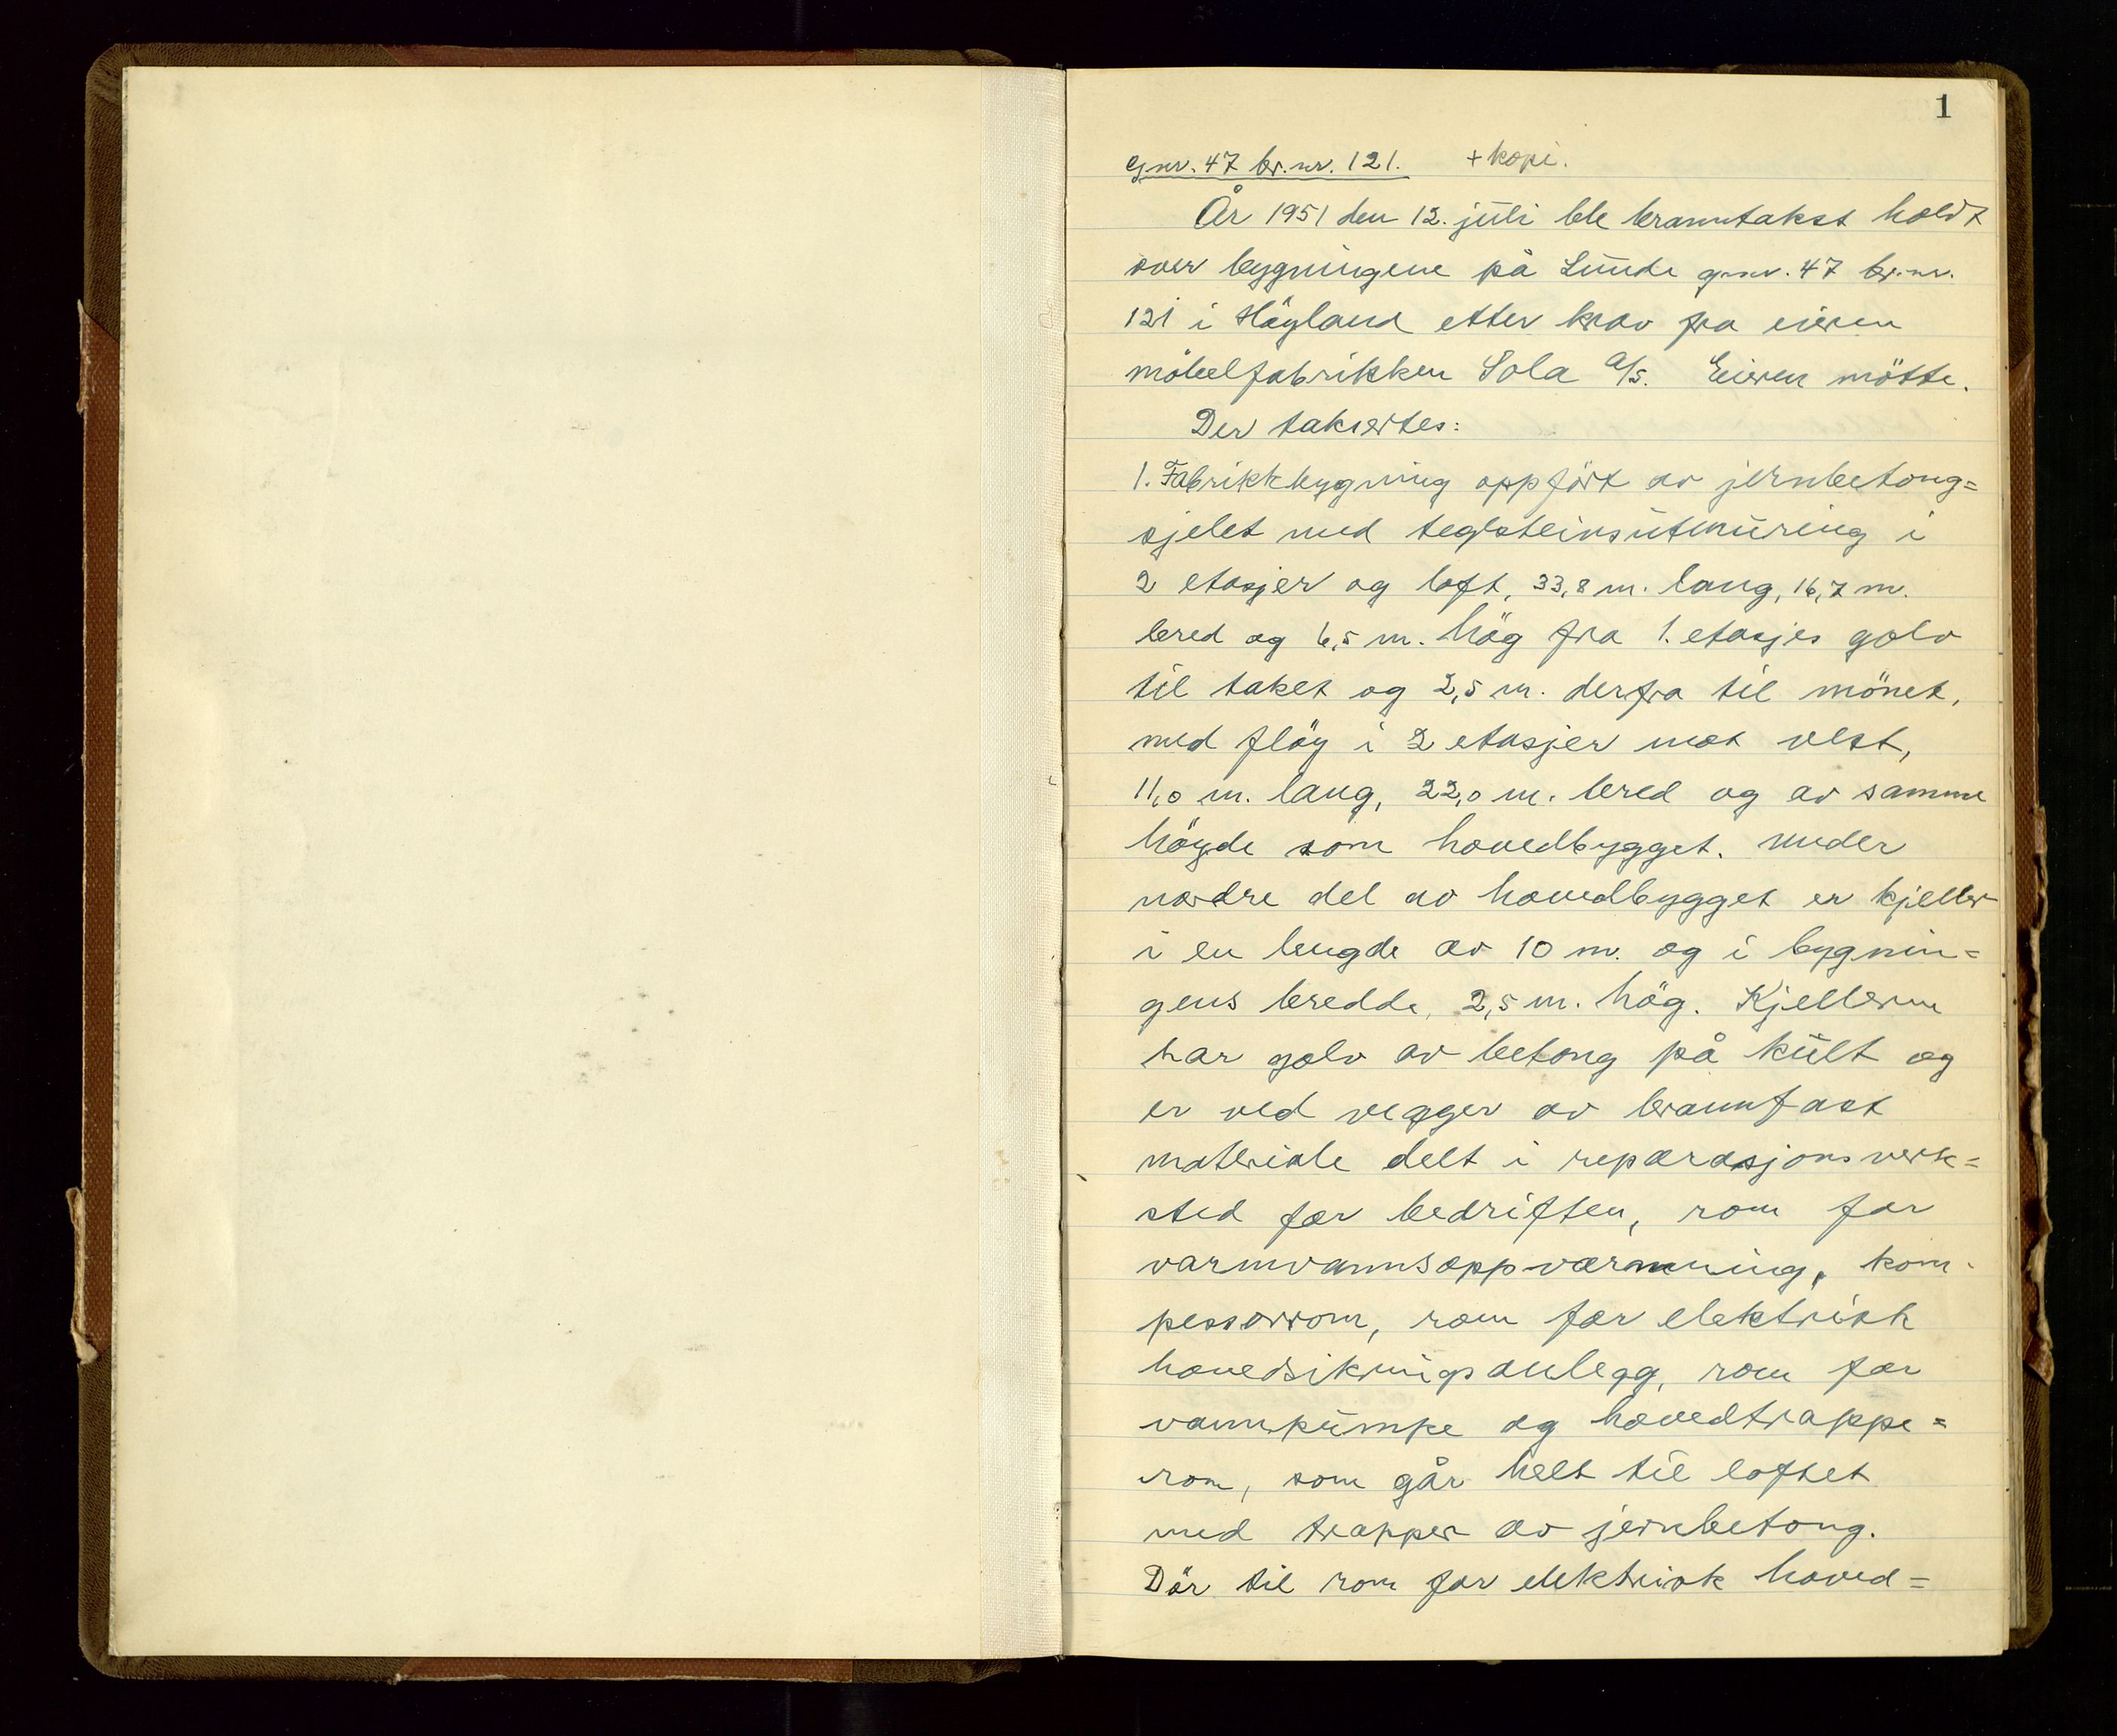 1
Gnr. 47 br.nr. 121. + kopi.
År 1951 den 12. juli ble branntakst holdt
over bygningene på Lunde g.nr. 47 br.nr.
121 i Höyland etter krav fra eieren
möbelfabrikken Sola A/S. Eieren mötte.
Der taksertes:
1. Fabrikkbygning oppfört av jernbetong=
sjelet med teglsteinsutmuring i
2 etasjer og loft, 33,8 m. lang, 16,7 m.
bred og 6,5 m. hög fra 1. etasjes golv
til taket og 2,5 m. derfra til mönet,
med flöy i 2 etasjer mot vest,
11,0 m. lang, 22,0 m. bred og av samme
höyde som hovedbygget. Under
nordre del av hovedbygget er kjeller
i en lengde av 10 m. og i bygnin=
gens bredde, 2,5 m. hög. Kjelleren
har golv av betong på kült og
er ved vegger av brannfast
materiale delt i reparasjonsverk=
sted for bedriften, rom for
varmvannsoppvarmning, kom-
pessorrom, rom for elektrisk
hovedsikringsanlegg, rom for
vannpumpe og hovedtrappe=
rom, som går helt til loftet
med trapper av jernbetong.
Dör til rom for elektrisk hoved=